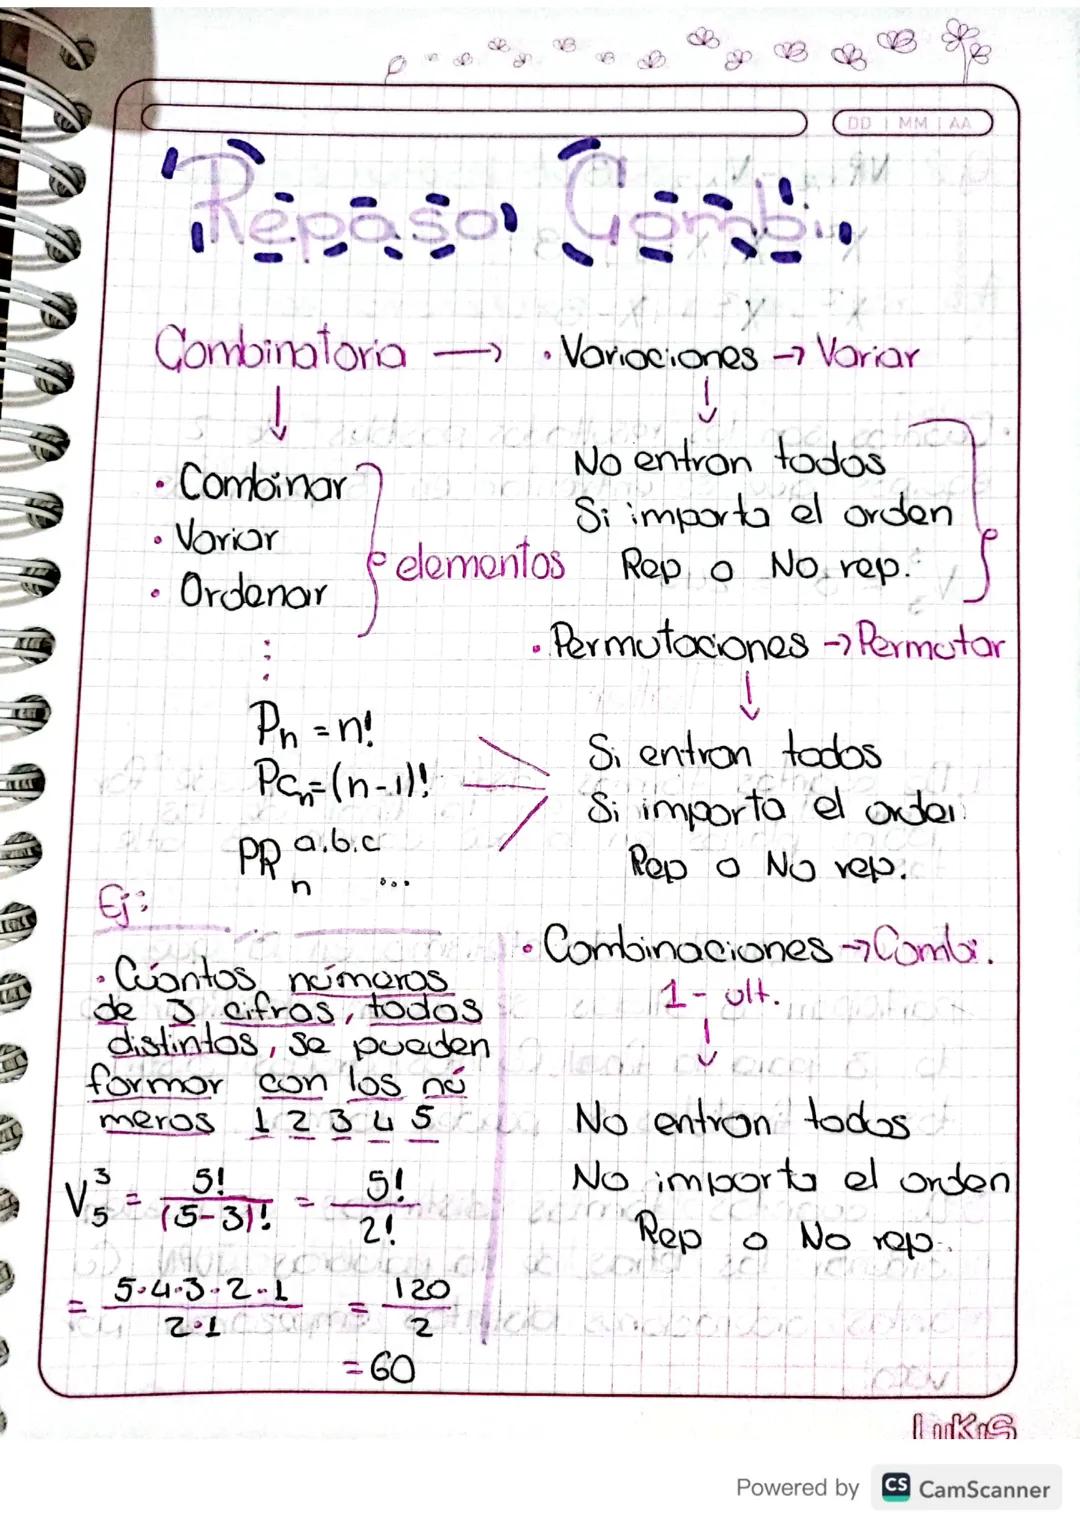 DD | MM | AA
Repaso Combi.
Combinatoria → · Variaciones → Variar
· Combinar
· Variar
· Ordenar
elementos
No entran todos
Si importa el orden
Rep o No rep.
· Permutaciones → Permutar
Pn = n!
PCn = (n-1)!
PR a,b,c
n ...
Si entran todos
Si importa el orden
Rep o No rep.
Ej:
· Cuántos números
de 3 cifros, todos
distintos, se pueden
formar con los nú
meros 1 2 3 4 5
V₅³ = 5!/(5-3)! = 5!/2!
= 5·4·3·2·1/2·1 = 120/2
= 60
· Combinaciones → Combi.
1 - ult.
No entran todos
No importa el orden
Rep o No rep.
LUKAS
Powered by CS CamScanner